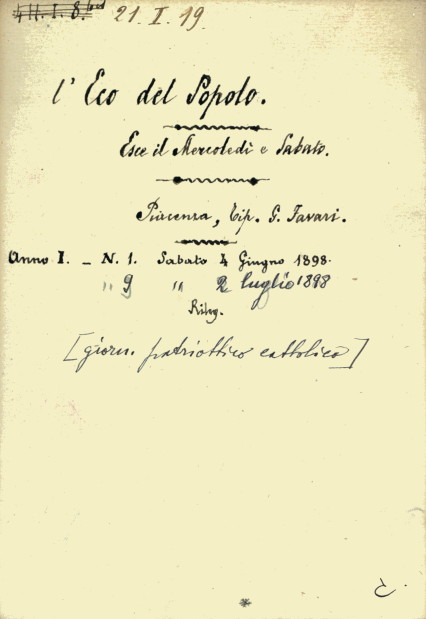 4 H. I. 8. bis 21. I. 19.
l' Eco del Popolo.
Esce il Mercoledì e Sabato.
Piacenza, Tip. G. Tavari.
Anno I. - N. 1. Sabato 4 Giugno 1898.
" 9 " 2 luglio 1898
Rileg.
[giorn. patriottico cattolico]
C.